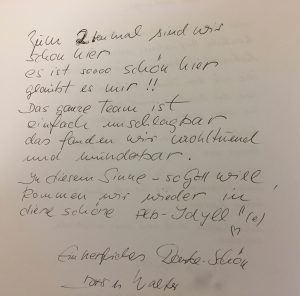 Zum 2tenmal sind wir
schon hier
es ist soooo schön hier
glaubt es mir !!
Das ganze Team ist
einfach unschlagbar
das fanden wir wohltuend
und wunderbar.
In diesem Sinne - so Gott will
kommen wir wieder in
diese schöne Idyll !! (e)
Ein herzliches Danke-Schön
Walter